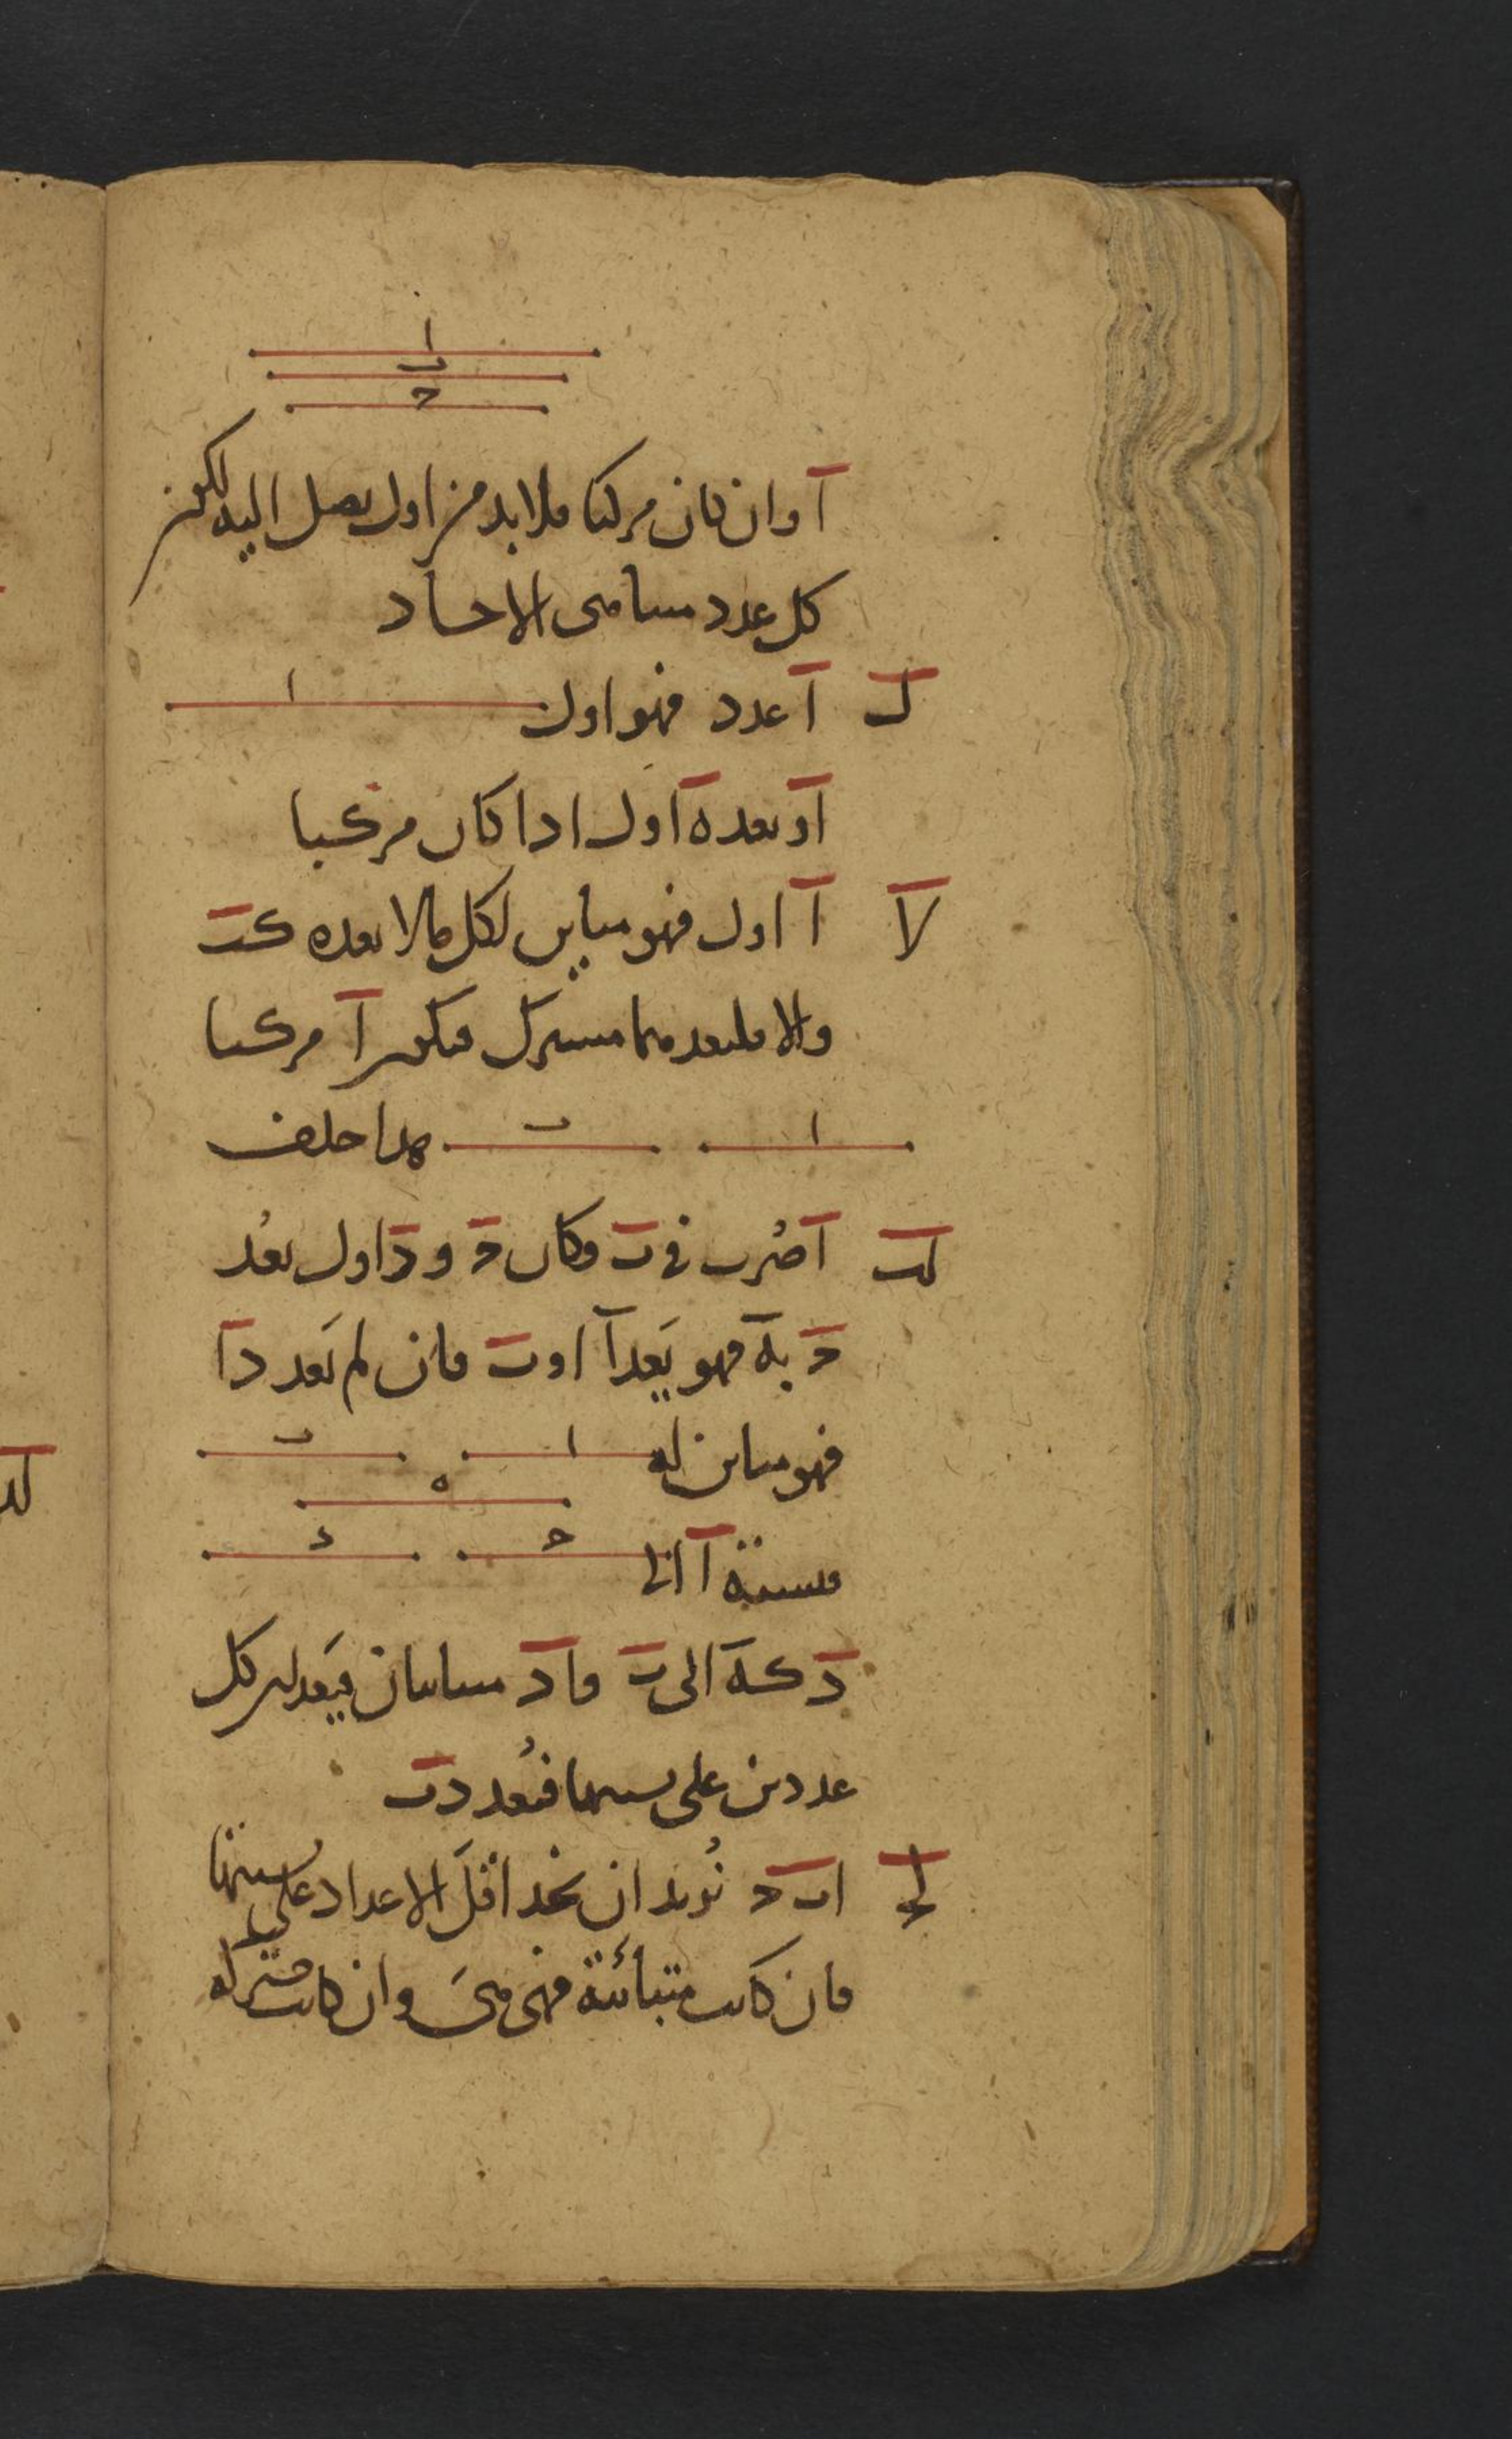 ا
ب
ج
آ وان كان مركبا فلا بد من اول يصل اليه لكون
كل عدد متناهى الاحاد
ل آ عدد فهو اول ا
او يعده اول اذا كان مركبا
لا آ اول فهو مباين لكل ما لا يعده كب
والا فليعدهما مشترك فيكون آ مركبا
ا ب هذا خلف
لب آ ضرب فى ب فكان ج و د اول يعد
ج به فهو يعد آ او ب فان لم يعد د ا
فهو مباين له ا ب
ه
فنسبة آ الى ج د
د كه الى ب فا د متباينان فيعدان كل
عددين على نسبتهما فيعد د ب
لج ا ب ج نريد ان نجد اقل الاعداد على نسبتها
فان كانت متبائنة فهى هى وان كانت مشتركة
لد